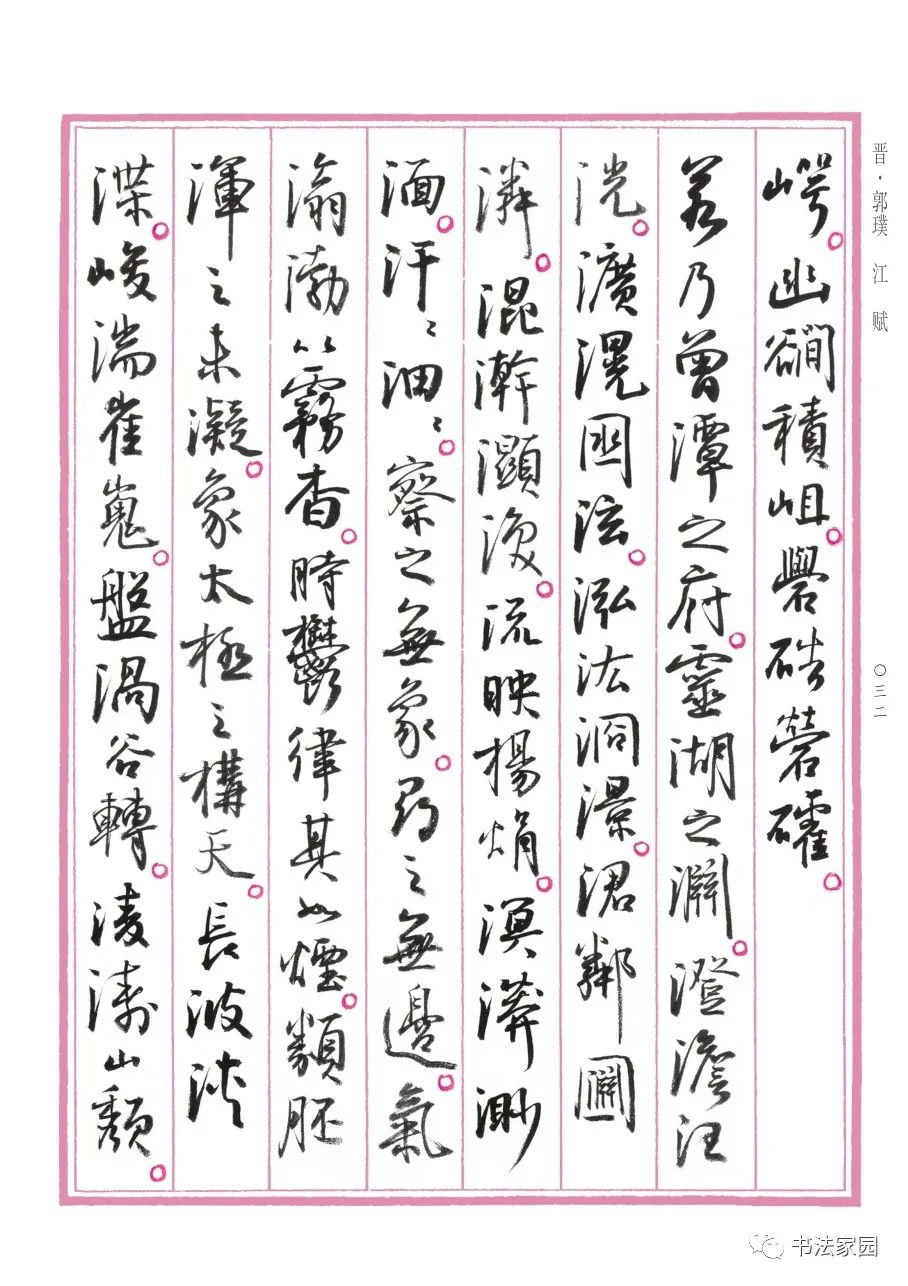 崿。幽䜭積岨。礐硞䃕礭。
若乃曾潭之府。靈湖之淵。澄澹汪
洸。瀇滉囦泫。泓汯浻澋。涒鄰㘤
潾。混澣灦渙。流映揚焆。溟漭渺
湎。汗〻沺〻。察之無象。尋之無邊。氣
滃渤以霧杳。時鬱律其如煙。類胚
渾之未凝。象太極之構天。長波浹
渫。峻湍崔嵬。盤渦谷轉。淩濤山頹。
晋·郭璞 江 赋
〇三二
书法家园